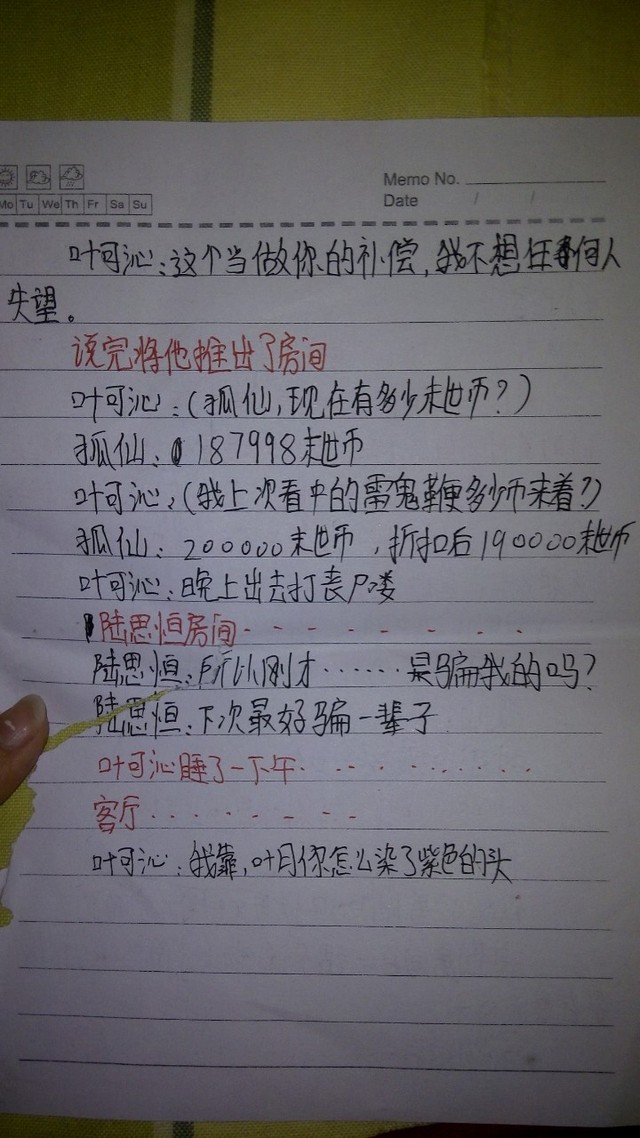 Memo No.
Date / /
Mo Tu We Th Fr Sa Su
叶可沁:这个当做你的补偿,我不想任何人
失望。
说完将他推出了房间
叶可沁:(狐仙,现在有多少末世币?)
狐仙:187998末世币
叶可沁:(我上次看中的雷鬼鞭多少币来着?)
狐仙:200000末世币,折扣后190000末世币
叶可沁:晚上出去打丧尸喽
陆思恒房间- - - - - - - -
陆思恒:所以刚才……是骗我的吗?
陆思恒:下次最好骗一辈子
叶可沁睡了一下午. . . . . . . . .
客厅. . . . . . . .
叶可沁:我靠,叶月你怎么染了紫色的头